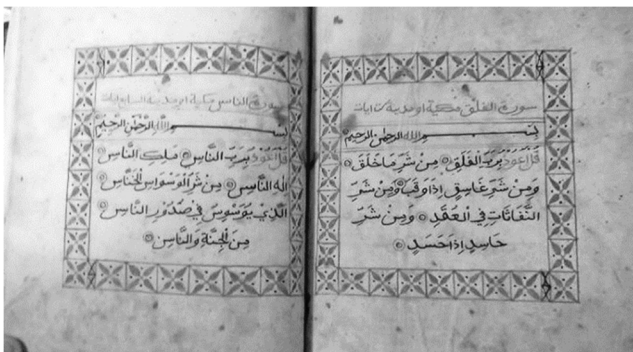 سورة الفلق مكية او مدنية ايات
بسم الله الرحمن الرحيم
قل اعوذ برب الفلق من شر ما خلق
ومن شر غاسق اذا وقب ومن شر
النفاثات في العقد ومن شر
حاسد اذا حسد
سورة الناس مكية او مدنية ايات
بسم الله الرحمن الرحيم
قل اعوذ برب الناس ملك الناس
اله الناس من شر الوسواس الخناس
الذي يوسوس في صدور الناس
من الجنة والناس